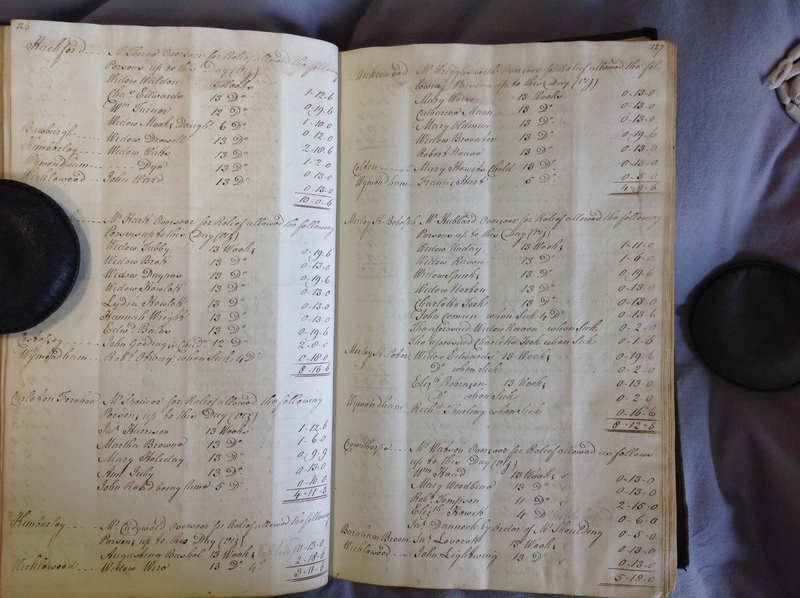 126
Hackford Mr Thorns Overseer for Relief allowed the following
Persons up to this Day (viz)
Widow Weldon 13 Weeks 1-12-6
Chas Edwards 13 Do 0-19-6
Wm Turner 12 Do 1-10-0
Widow Meeks Daughr 6 Do 0-12-0
Bawburgh Widow Drewell 13 Do 2-18-6
Kimberley Widow Wicks 13 Do 1-2-0
Wymondham Dye 13 Do 0-13-0
Wicklewood John Ward 13 Do 0-13-0
10-0-6
Mr Hart Overseer for Relief allowed the following
Persons up to this Day (viz)
Widow Tubby 13 Weeks 0-19-6
Widow Brett 13 Do 0-13-0
Widow Daynes 13 Do 0-19-6
Widow Howlett 13 Do 0-13-0
Lydia Howlett 13 Do 0-13-0
Hannah Wright 13 Do 0-13-0
Edwd 13 Do 0-19-6
Costessey John Child 12 Do 2-8-0
Wymondham Robt when Sick 4 Do 0-18-0
8-16-6
Carleton Forehoe Mr Spencer for Relief allowed the following
Persons up to this Day (viz)
Jas Harrison 13 Weeks 1-12-6
Martha Browne 13 Do 1-6-0
Mary Holiday 13 Do 0-9-9
Ann July 13 Do 0-13-0
John Rand being lame 5 Do 0-10-0
4-11-3
Kimberley Mr Overseer for Relief allowed the following
Persons up to this Day (viz)
Augustine Bushel 13 Weeks 0-13-0
Wicklewood Widow Wire 13 Do 2-18-6
3-11-6
127
Wicklewood Mr Wrigglesworth Overseer for Relief allowed the fol-
lowing Persons up to this Day (viz)
Mary Watson 13 Weeks 0-13-0
Catharine Mann 13 Do 0-13-0
Mary Oldman 13 Do 0-13-0
Widow Browster 13 Do 0-19-6
Robert 13 Do 0-13-0
Colton Mary Howits Child 13 Do 0-13-0
Wymondham Francis Hart 5 Do 0-5-0
4-9-6
Morley St Botolph Mr Hubbard Overseer for Relief allowed the following
Persons up to this Day (viz)
Widow Unday 13 Weeks 1-11-0
Widow Raven 13 Do 1-6-0
Widow Spink 13 Do 0-19-6
Widow Norton 13 Do 0-13-0
Charlotte 13 Do 0-13-0
John Coman when Sick 4 Do 0-13-6
The aforesaid Widow Raven when Sick 0-2-0
The aforesaid Charlotte when Sick 0-1-6
Morley St Peter Widow Edwards 13 Weeks 0-19-6
Do when Sick 0-2-0
Elizth Robinson 13 Weeks 0-13-0
Do when Sick 0-2-0
Wymondham Richd Thirling when Sick 0-16-6
8-12-6
Crownthorpe Mr Watson Overseer for Relief allowed as follows
up to this Day (viz)
Wm Hand 13 Weeks 0-13-0
Mary Woodbine 13 Do 0-13-0
Robt Tompson 11 Do 2-15-0
Elizth 4 Do 0-6-0
Jas Dannock by Order of Mr Shoulding 0-5-0
Barnham Broom Jas Loveorth 13 Weeks 0-13-0
Wicklewood John Lightwing 13 Do 0-13-0
5-18-0